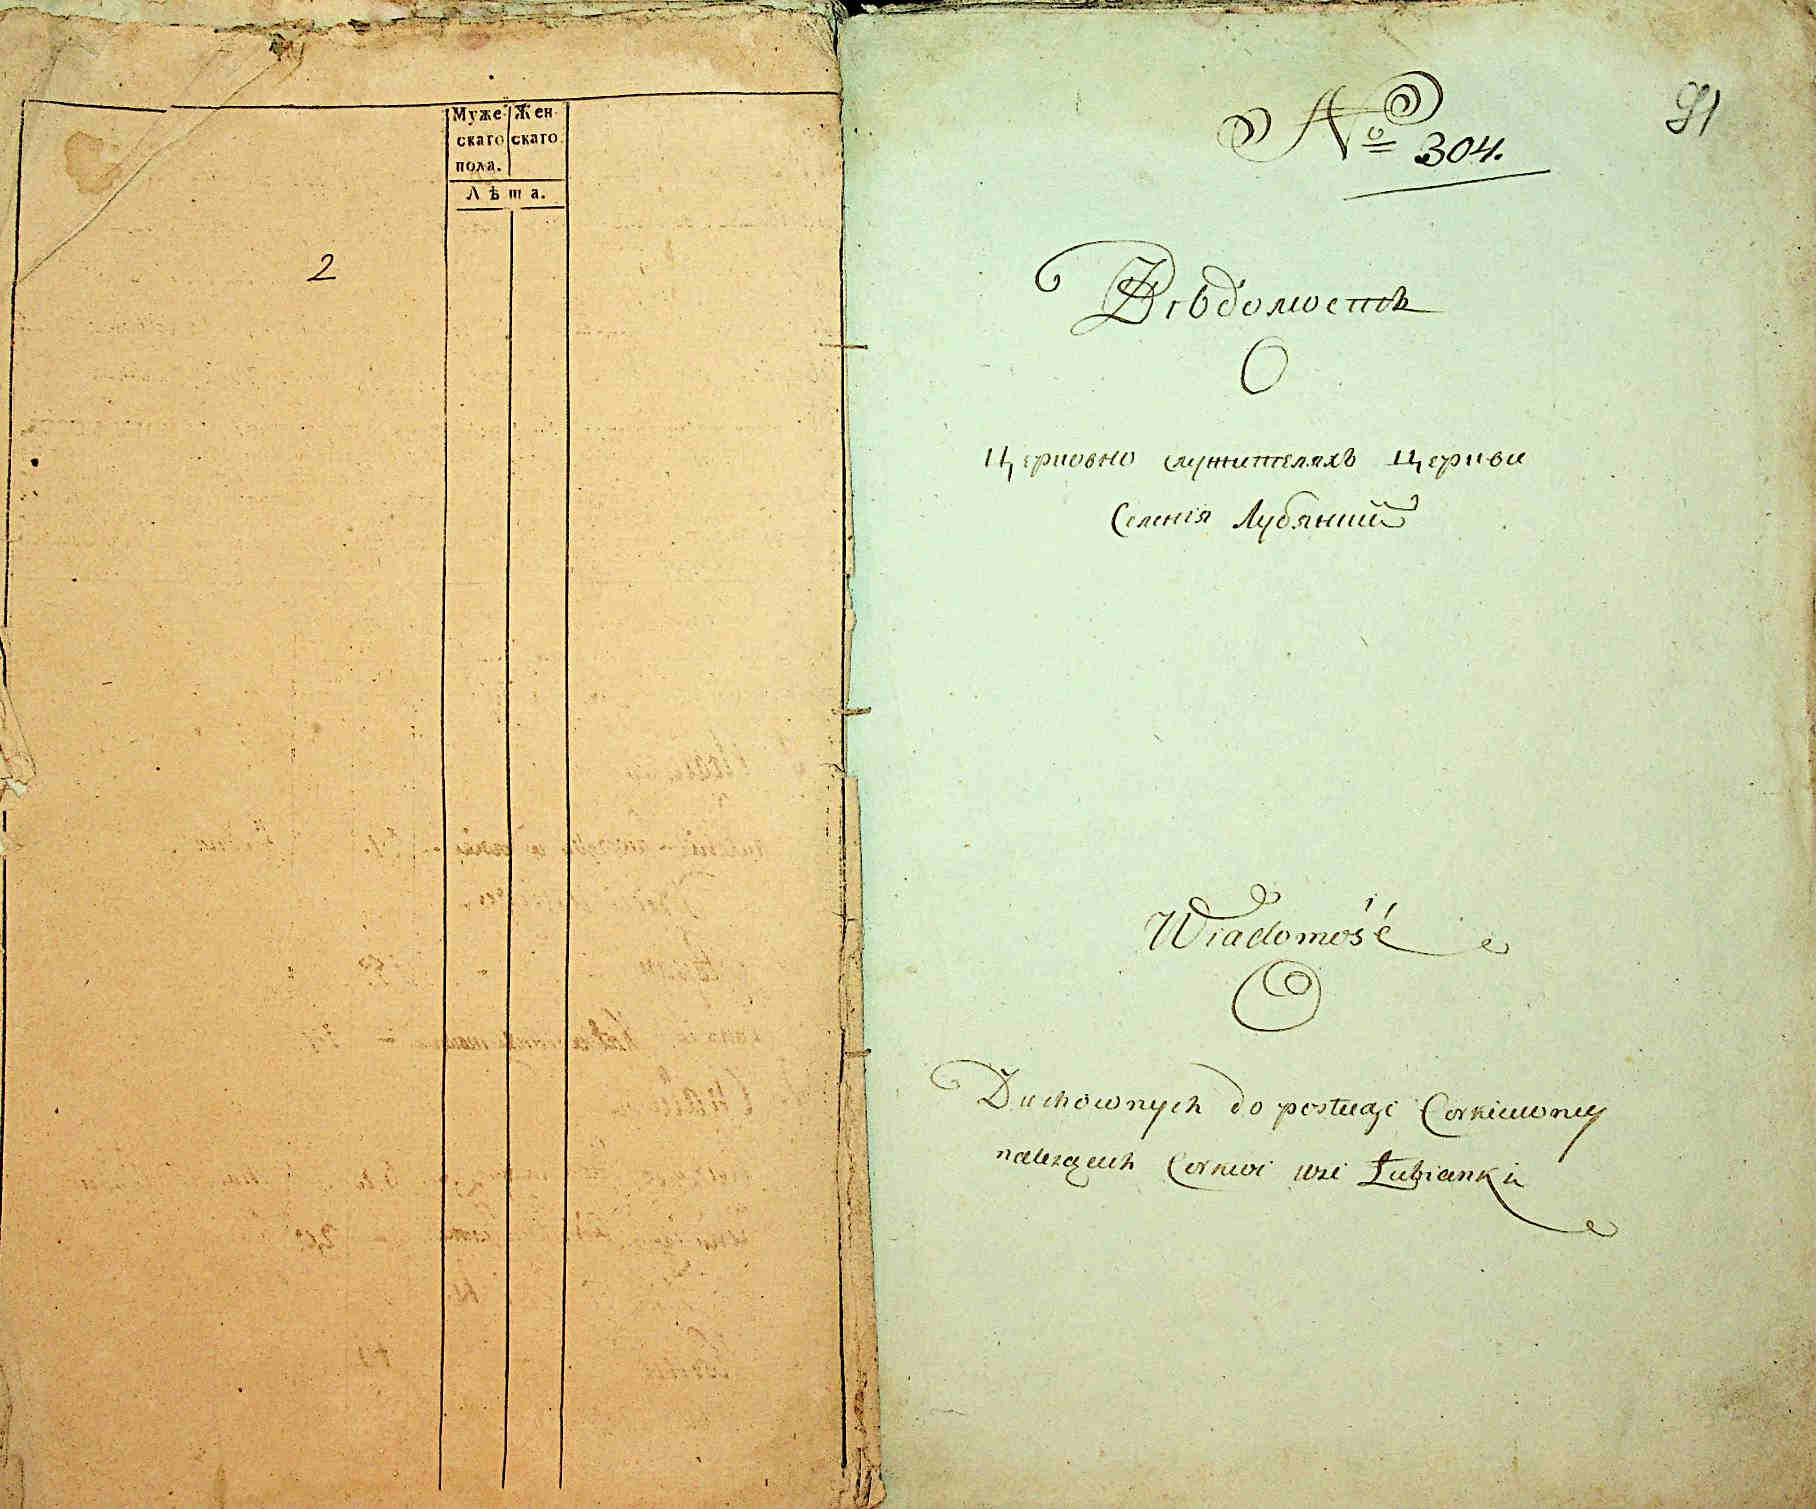 Муже- Жен-
скаго скаго
пола.
Лѣта.
2
№ 304.
91
Вѣдомость
О
Церковно служителяхъ Церкви
Селенія Лубянки
Wiadomość
O
Duchownych do posługi Cerkiewney
należących Cerkwi wsi Łubianki